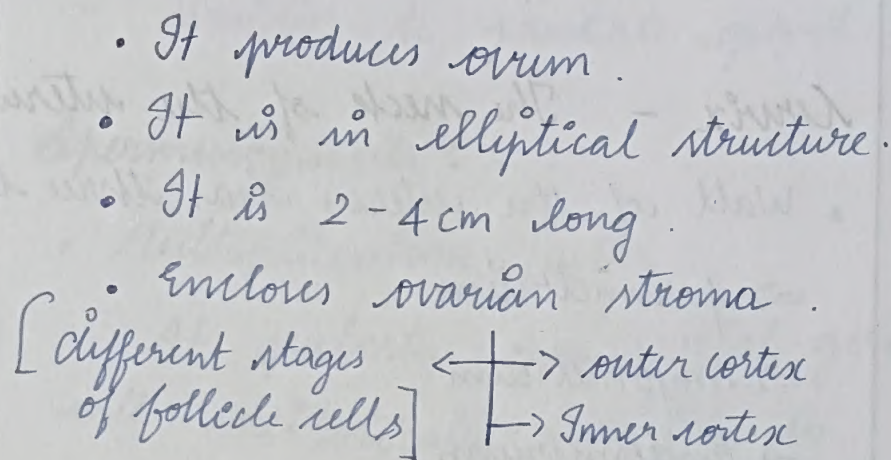 • It produces ovum.
• It is in elliptical structure.
• It is 2-4 cm long.
• Encloses ovarian stroma.
[different stages <-> outer cortex
of follicle cells] -> Inner cortex